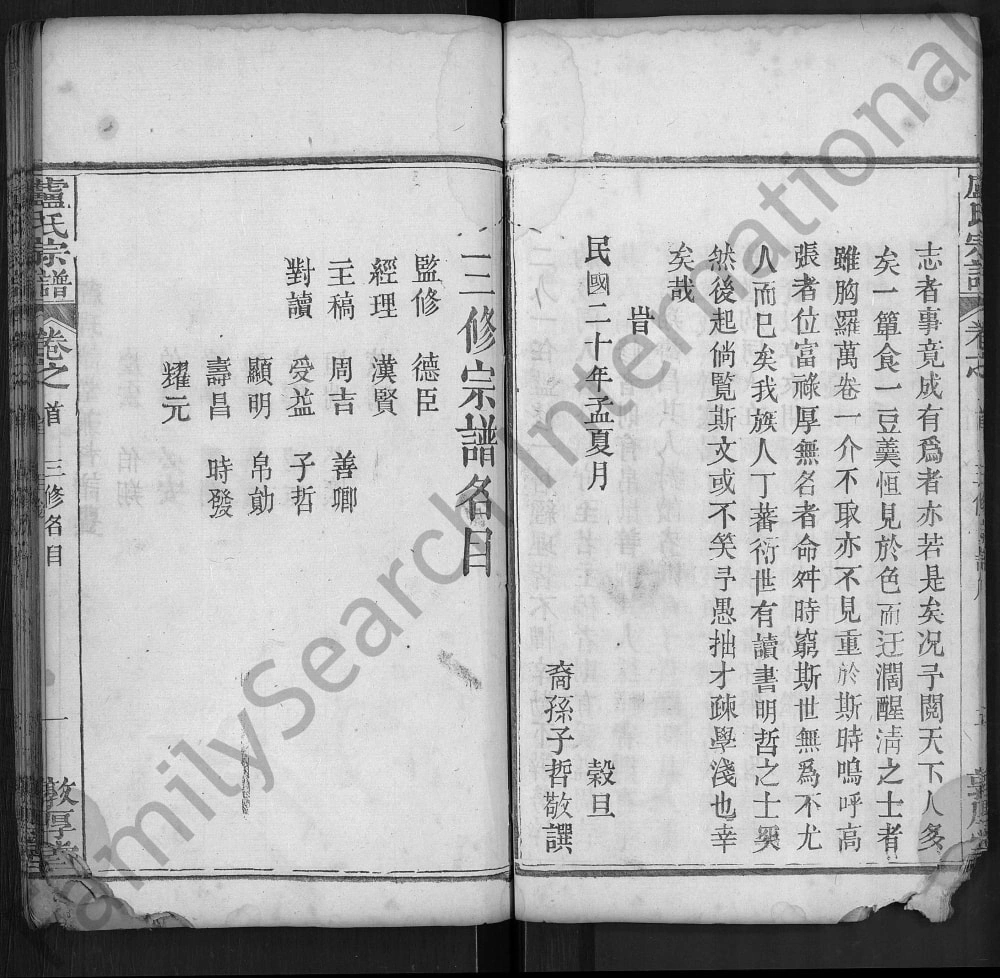 志者事竟成有爲者亦若是矣况予閱天下人多
矣一簞食一豆羹恒見於色而迂濶醒淸之士者
雖胸羅萬卷一介不取亦不見重於斯時嗚呼高
張者位富祿厚無名者命舛時窮斯世無爲不尤
人而已矣我族人丁蕃衍世有讀書明哲之士奭
然後起倘覧斯文或不笑予愚拙才疎學淺也幸
矣哉
旹
民國二十年孟夏月 穀旦
裔孫子哲敬譔
三修宗譜名目
監修 德臣
經理 漢賢
主稿 周吉 善卿
對讀 受益 子哲
顯明 帛勛
壽昌 時發
耀元
盧氏宗譜 卷之首 三修名目 一 敦厚堂
FamilySearch International